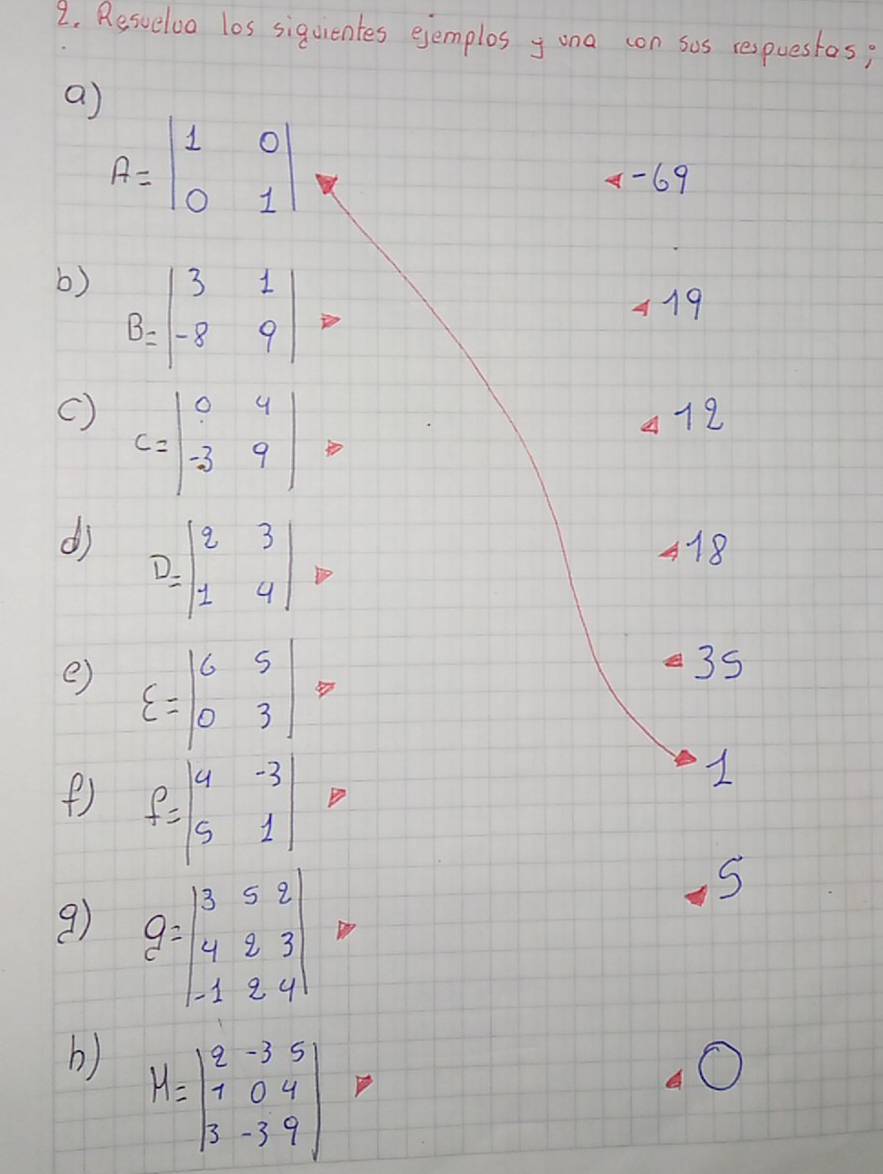 2. Resuelva los siguientes ejemplos y una con sus respuestas;
a)
A= |1 0|
|0 1|
-69
b)
B= |3 1|
|-8 9|
19
c)
C= |0 4|
|-3 9|
12
d)
D= |2 3|
|1 4|
18
e)
E= |6 5|
|0 3|
35
f)
f= |4 -3|
|5 1|
1
g)
g= |3 5 2|
|4 2 3|
|-1 2 4|
5
h)
H= |2 -3 5|
|1 0 4|
|3 -3 9|
0